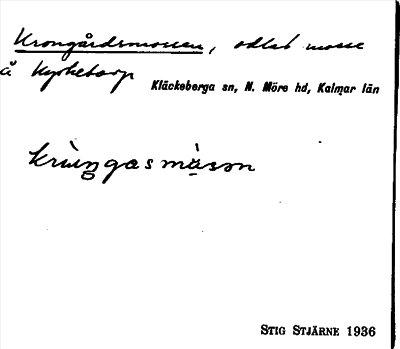 Krongårdsmossen, odlad mosse
å Kyrketorp Kläckeberga sn, N. Möre hd, Kalmar län
krùŋgasmåson
STIG STJÄRNE 1936